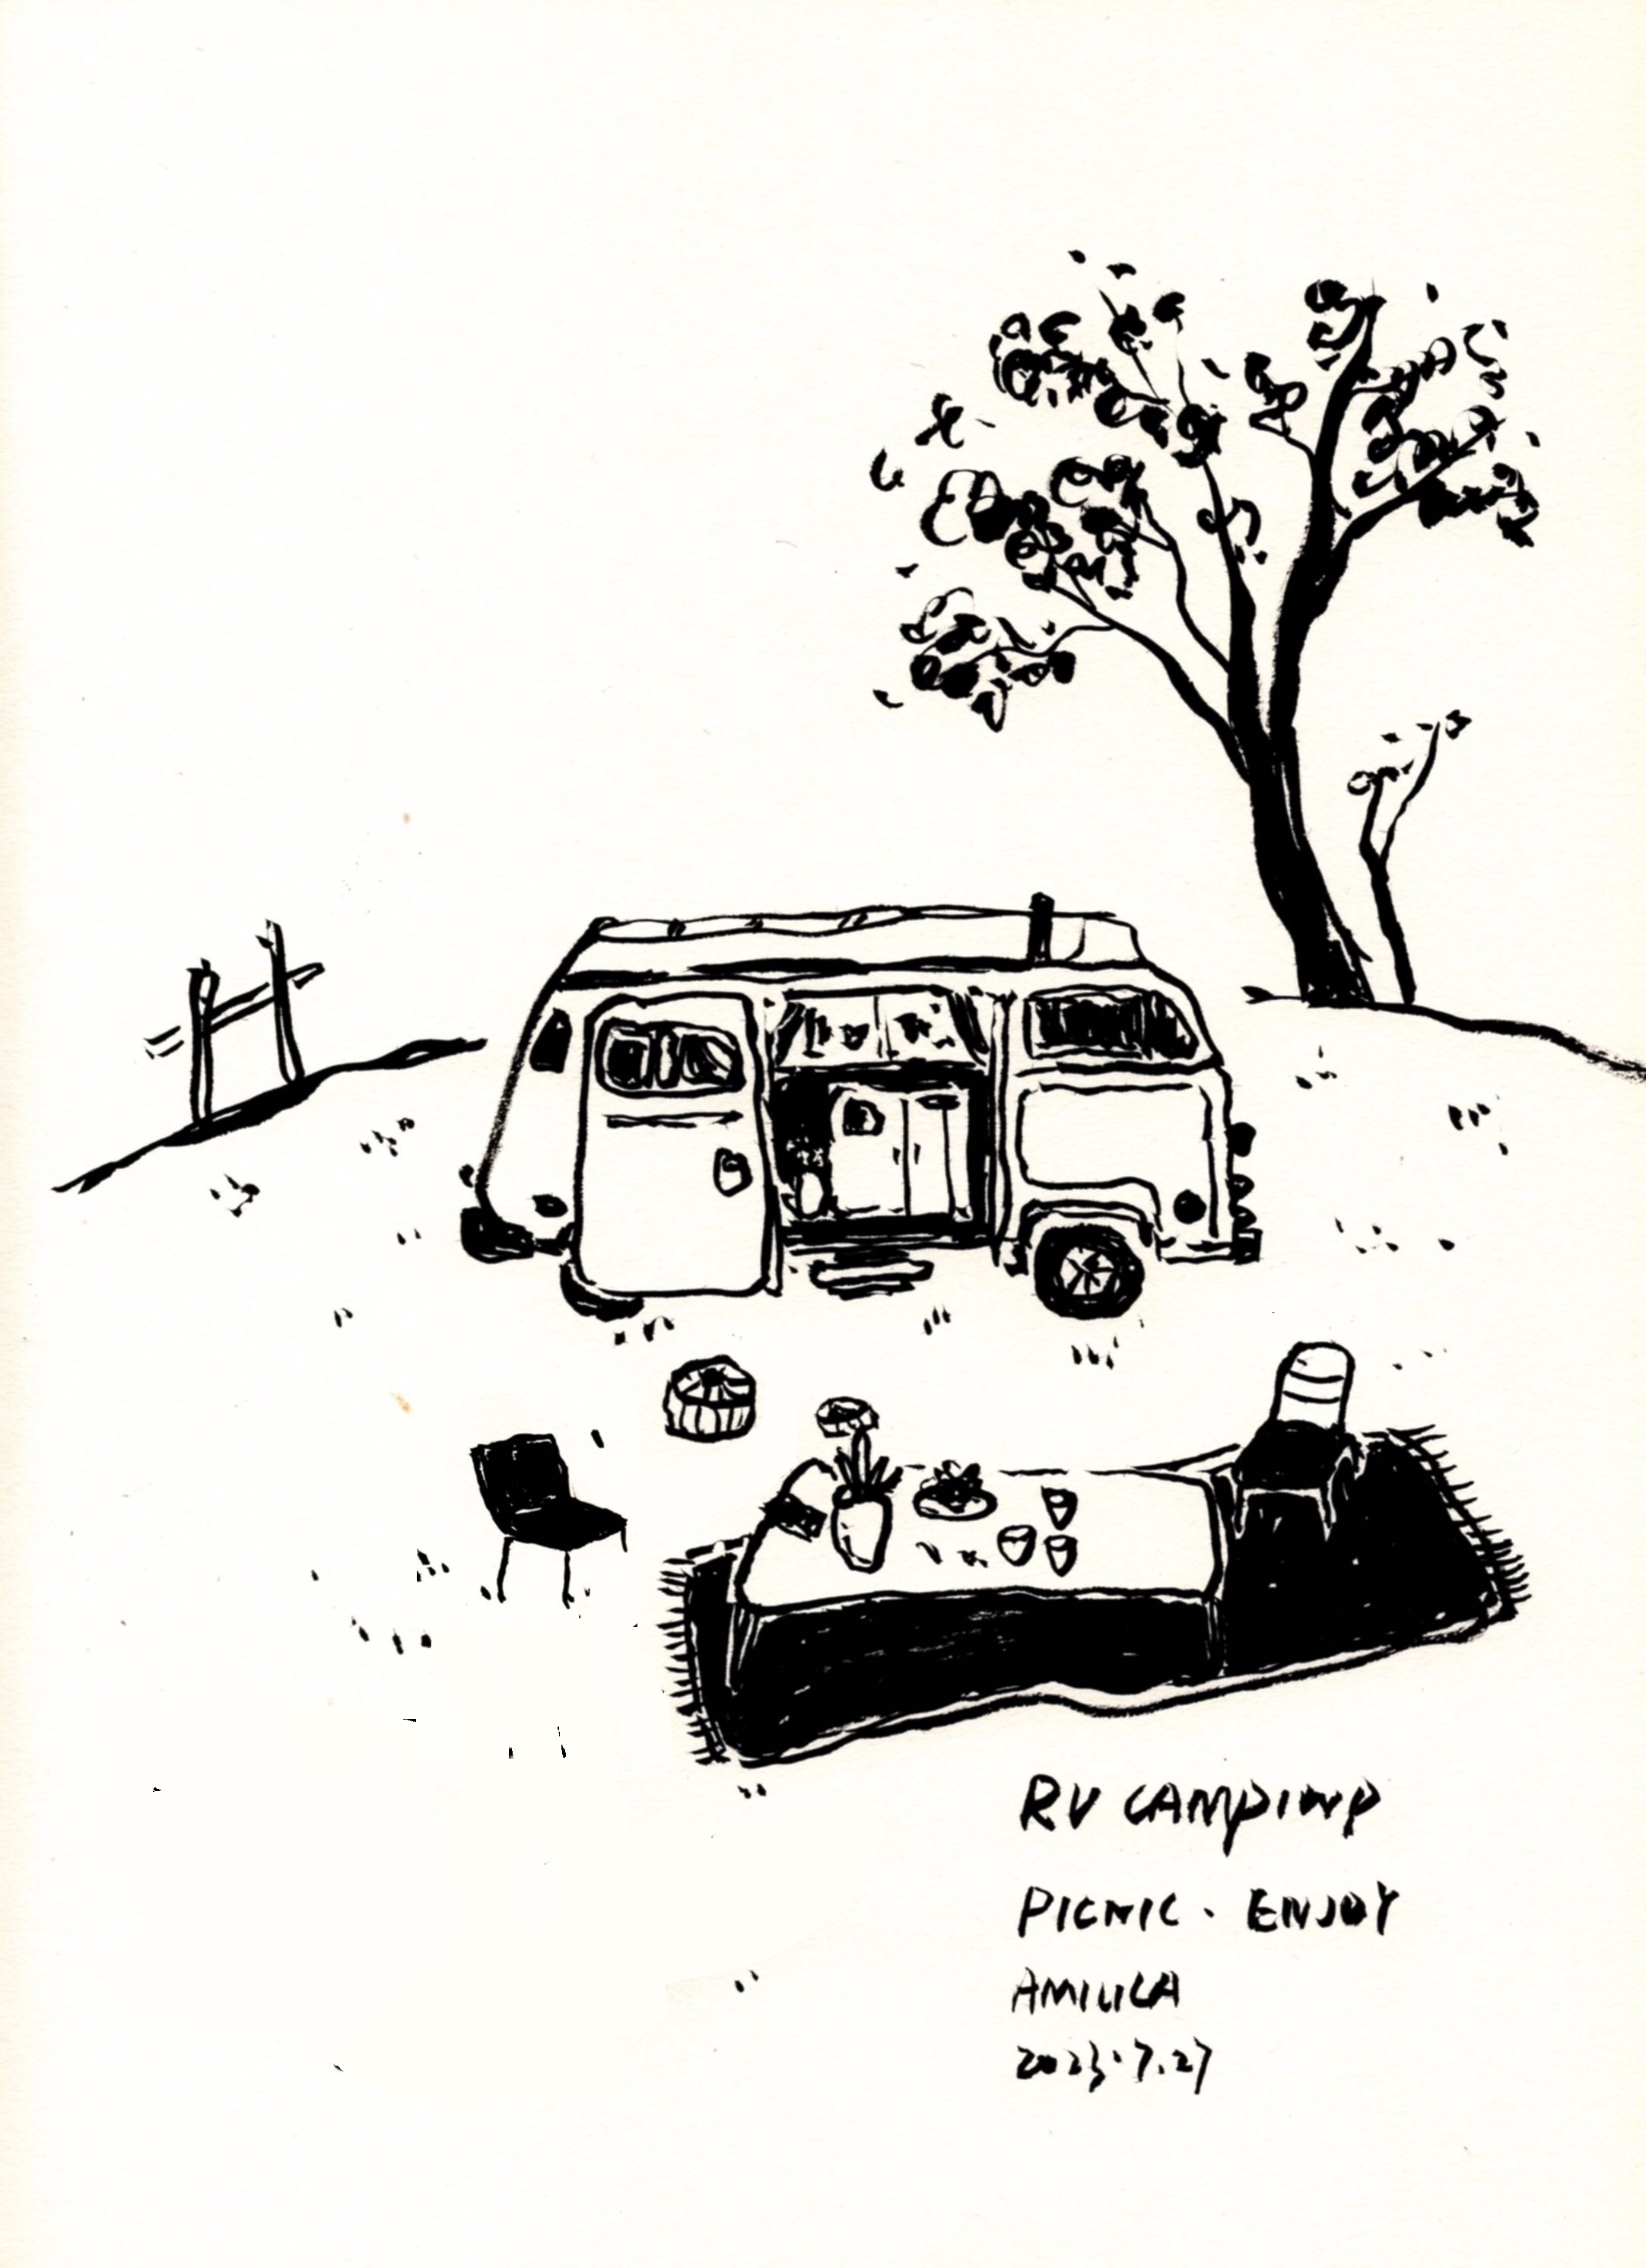 RV CAMPING
PICNIC · ENJOY
AMILICA
2023.7.27